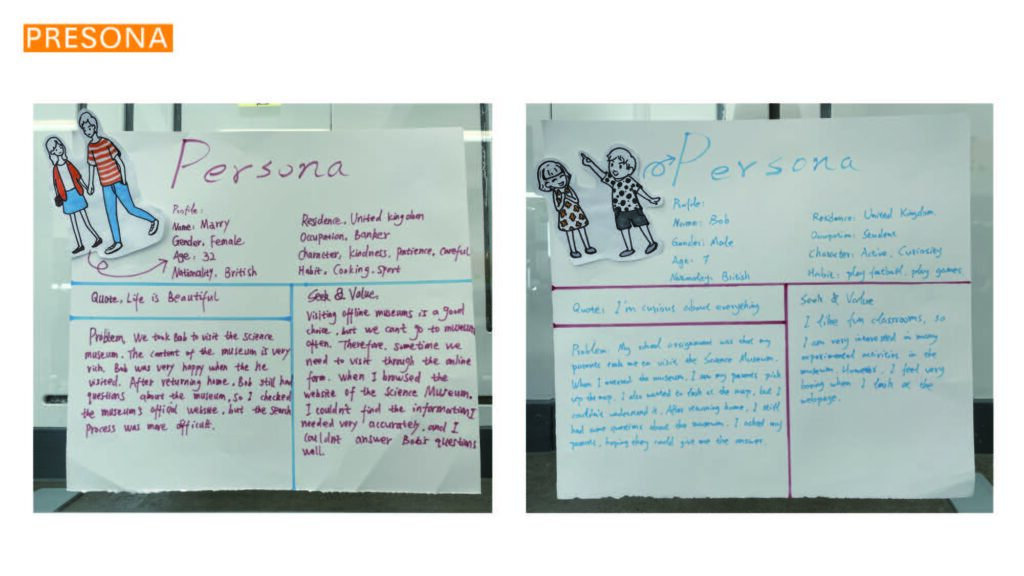 PRESONA
Persona
Profile:
Name: Marry
Gender. Female
Age: 32
Nationality. British
Residence. United kingdom
Occupation. Banker
Character, kindness, patience, careful
Habit. Cooking. Sport
Quote, Life is Beautiful
Problem, We took Bob to visit the science
museum. The content of the museum is very
rich. Bob was very happy when the he
visited. After returning home, Bob still had
questions about the museum, so I checked
the museum's official website, but the search
process was more difficult.
Seek & Value.
Visiting offline museums is a good
choice, but we can't go to museums
often. Therefore, sometime we
need to visit through the online
form. when I browsed the
website of the science Museum.
I couldn't find the information I
needed very accurately, and I
couldn't answer Bob's questions
well.
Persona
Profile:
Name: Bob
Gender: Male
Age: 7
Nationality: British
Residence: United Kingdom
Occupation: Student
Character: Active. Curiosity
Habit: play football, play games
Quote: I'm curious about everything
Problem: My school assignment was that my
parents took me to visit the Science Museum.
When I entered the museum, I saw my parents pick
up the map. I also wanted to look at the map, but I
couldn't understand it. After returning home, I still
had some questions about the museum. I asked my
parents, hoping they could give me the answer.
Seek & Value
I like fun classrooms, so
I am very interested in many
experimental activities in the
museum. However, I feel very
boring when I look at the
webpage.